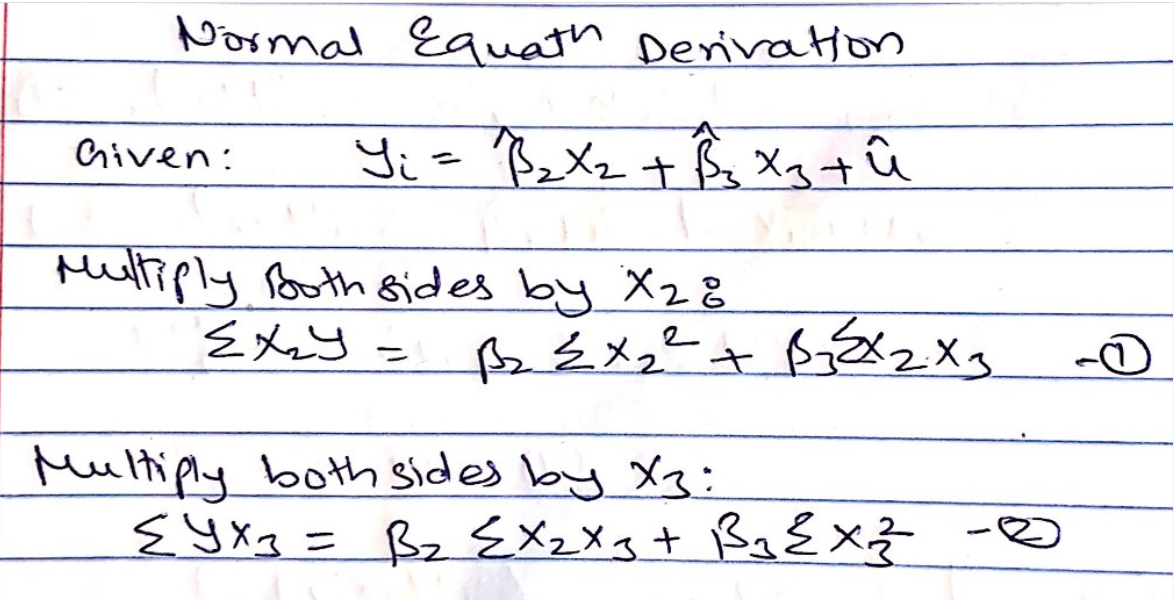 Normal Equatⁿ Derivation
Given: yᵢ = β̂₂x₂ + β̂₃x₃ + û
Multiply Both sides by x₂:
Σx₂y = β₂ Σx₂² + β₃Σx₂x₃ -①
Multiply both sides by x₃:
Σyx₃ = β₂ Σx₂x₃ + β₃Σx₃² -②